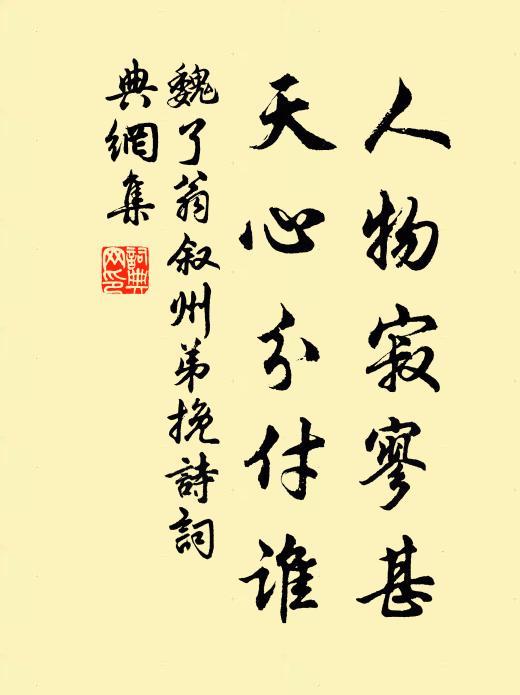 人物寂寥甚
天心分付谁
魏了翁叙州弟挽詩詞
典網集
詞典
网印